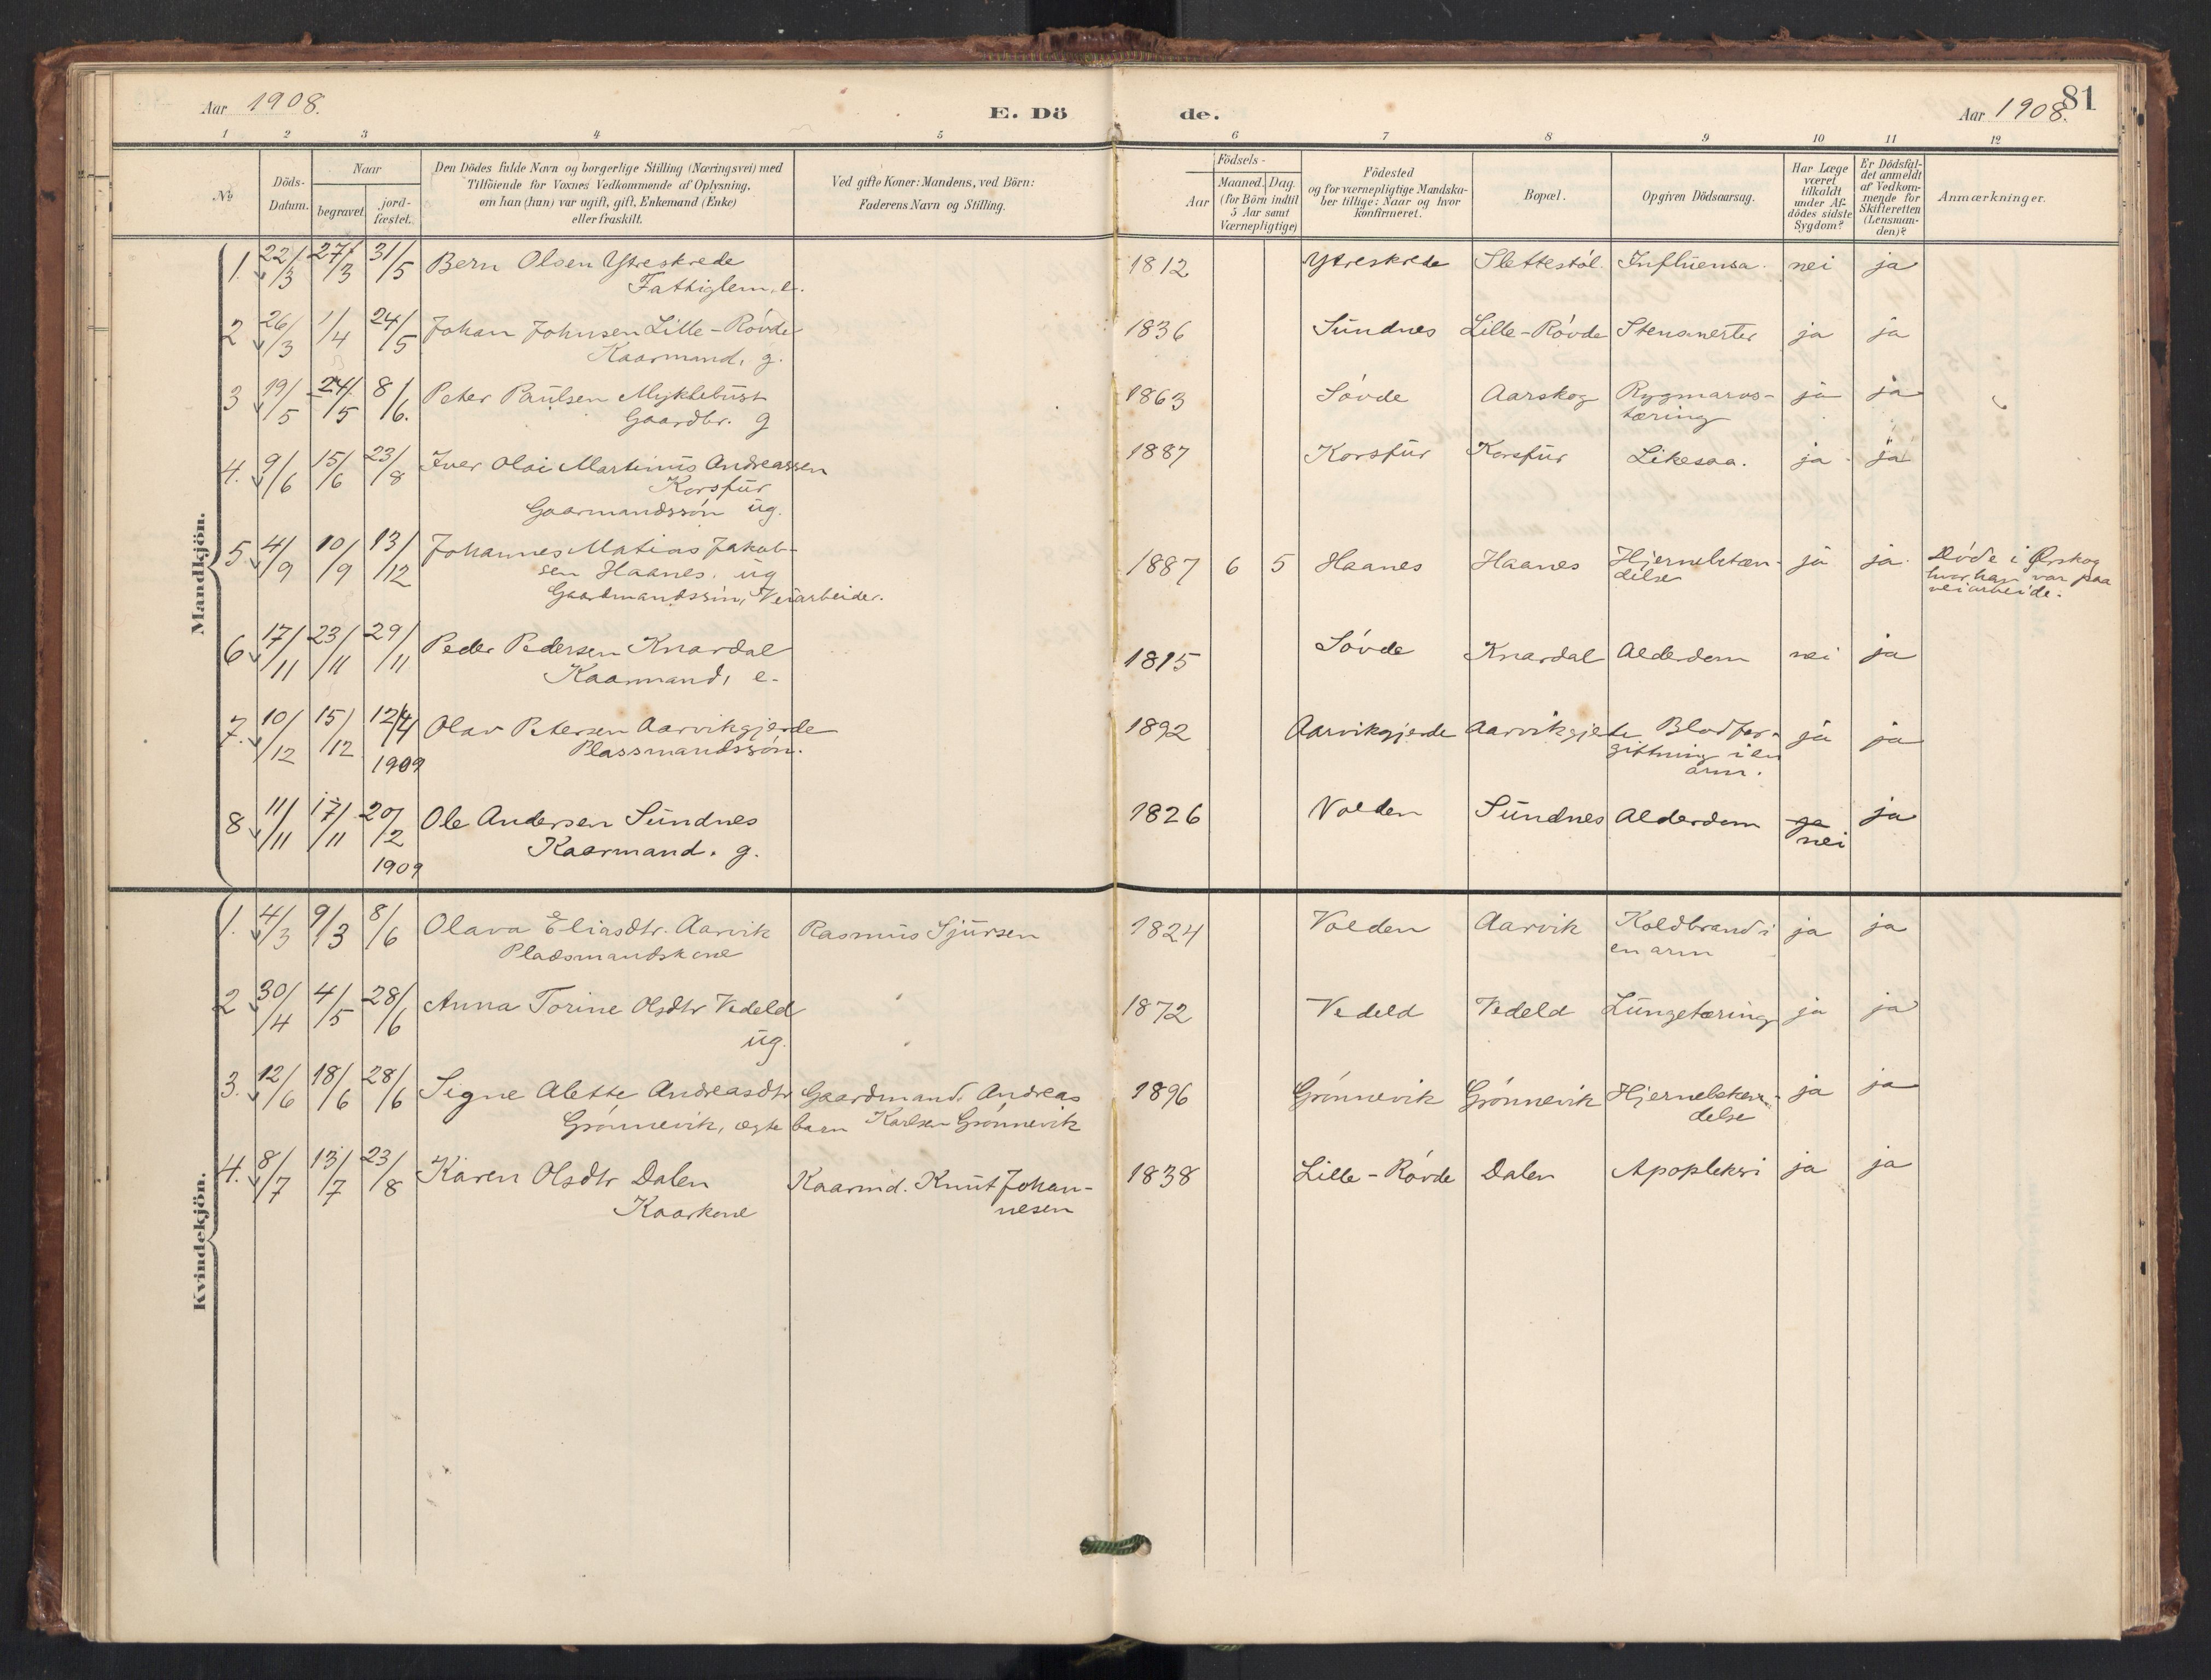 Aar 1908.
E. Dö de.
Aar 1908.
81
1 2 3 4 5 6 7 8 9 10 11 12
No
Döds-
Datum.
Naar
begravet.
jord-
fæstet.
Den Dödes fulde Navn og borgerlige Stilling (Næringsvei) med
Tilföiende for Voxnes Vedkommende af Oplysning,
om han (hun) var ugift, gift, Enkemand (Enke)
eller fraskilt.
Ved gifte Koner: Mandens, ved Börn:
Faderens Navn og Stilling.
Födsels-
Aar
Maaned. Dag.
(for Börn indtil
5 Aar samt
Værnepligtige)
Födested
og for værnepligtige Mandska-
ber tillige: Naar og hvor
konfirmeret.
Bopæl.
Opgiven Dödsaarsag.
Har Læge
været
tilkaldt
under Af-
dödes sidste
Sygdom?
Er Dödsfal-
det anmeldt
af Vedkom-
mende for
Skifteretten
(Lensman-
den)?
Anmærkninger.
Mandkjön.
1. 22/3 27/3 31/5 Bern Olsen Ytreskrede 1812 Ytreskrede Slettestöl. Influensa. nei ja
Fattiglem, e.
2 26/3 1/4 24/5 Johan Johnsen Lille-Róvde 1836 Sundnes Lille-Róvde Stensmerter ja ja
Kaarmand, g.
3 19/5 24/5 8/6. Peter Paulsen Myklebust 1863 Sóvde Aarskog Rygmarvs- ja ja
Gaardbr. g tæring
4. 9/6 15/6 23/8 Iver Olai Martinus Andreassen 1887 Korsfur Korsfur Likesaa. ja ja
Korsfur
Gaarmandssón ug.
5 4/9 10/9 13/12 Johannes Matias Jakob- 1887 6 5 Haanes Haanes Hjernebetæn- ja ja. Döde i Ørskog
sen Haanes. ug delse hvor han var paa
Gaardmandssón, Veiarbeider. veiarbeide.
6 17/11 23/11 29/11 Peder Pedersen Knardal 1815 Sóvde Knardal Alderdom nei ja
Kaarmand, e.
7. 10/12 15/12 12/4 Olav Petersen Aarvikgjerde 1892 Aarvikgjerde Aarvikgjerde Blodfor- ja ja
1909 Plassmandssón. giftning i en
arm.
8 11/11 17/11 20/2 Ole Andersen Sundnes 1826 Volden Sundnes Alderdom ja ja
1909 Kaarmand. g. nei
Kvindekjön.
1. 4/3 9/3 8/6 Olava Eliasdtr. Aarvik Rasmus Sjursen 1824 Volden Aarvik Koldbrand i ja ja
Pladsmandskone en arm
2 30/4 4/5 28/6 Anna Torine Olsdtr Vedeld 1872 Vedeld Vedeld Lungetæring ja ja
ug.
3. 12/6 18/6 28/6 Signe Alette Andreasdtr Gaardmand Andreas 1896 Grónnevik Grónnevik Hjernebeten- ja ja
Grónnevik, ægte barn Karlsen Grónnevik delse
4. 8/7 13/7 23/8 Karen Olsdtr Dalen Kaarmd. Knut Johan- 1838 Lille-Róvde Dalen Apopleksi ja ja
Kaarkone nesen